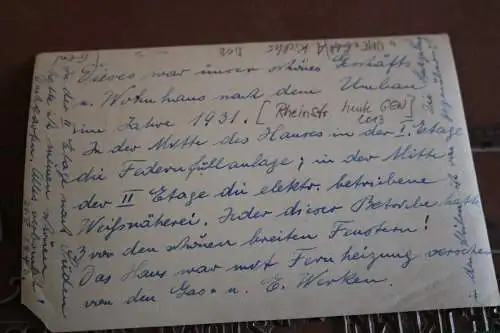 Dieses war unser schönes Geschäfts
u. Wohnhaus nach dem Umbau
im Jahre 1931. [Rheinstr heute GEN]
2013
In der Mitte des Hauses in der I. Etage
die Federnfüllanlage; in der Mitte
der II Etage die elektr. betriebene
Weißnäherei. Jeder dieser Betriebe hatte
3 von den schönen breiten Fenstern!
Das Haus war mit Fernheizung versehen
von den Gas- u. E. Werken.
in der II Etage nach Süden
hatte ich meinen schönen
Alles verbrannt!